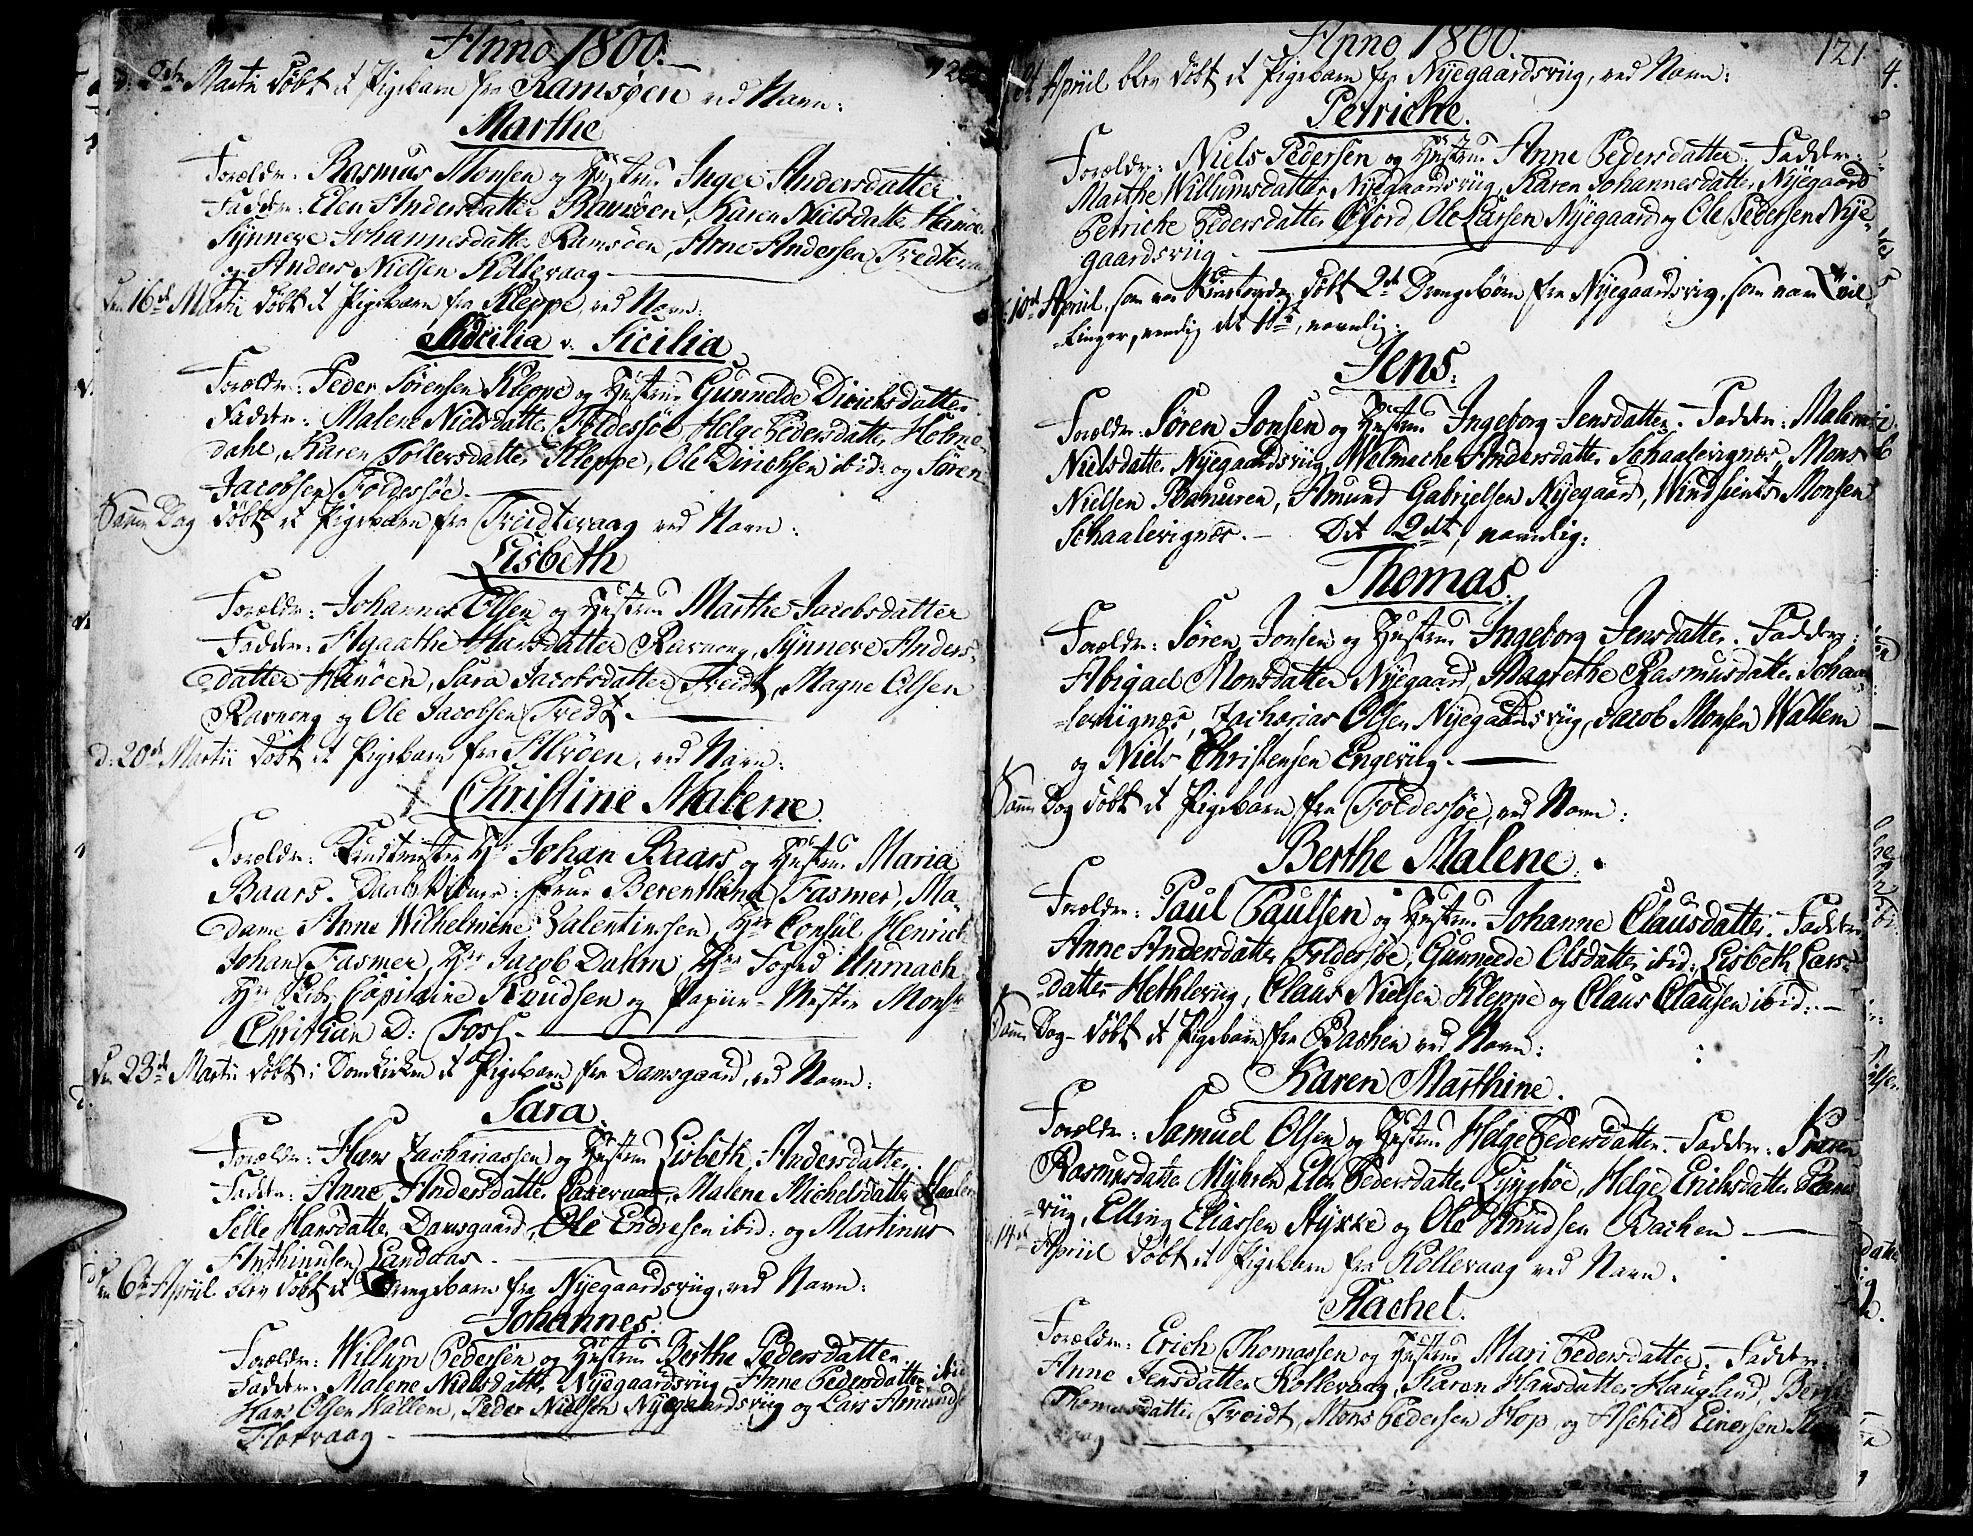 Anno 1800.
d: 9de Martii døbt et Pigebarn fra Ramsøen ved Navn:
Marthe
Forældr: Rasmus Monsen og Hustrue Inger Andersdatter
Faddr: Elen Andersdatter Ramsøen, Karen Nielsdatter Hanøe
Synneve Johannesdatter Ramsøen, Arne Andersen Tredtevaag
og Anders Nielsen Kollevaag
den 16de Martii døbt et Pigebarn fra Kleppe, ved Navn:
Sicilia
Forældr: Peder Sørensen Kleppe og Hustrue Gunnelde Dirichsdatter
Faddr: Malene Nielsdatter Foldessøe, Helge Pedersdatter Holme-
dahl, Karen Tollersdatter Kleppe, Ole Dirichsen ibid: og Søren
Jacobsen Foldessøe.
Samme Dag døbt et Pigebarn fra Treidtevaag ved Navn:
Lisbeth
Forældr: Johannes Olsen og Hustrue Marthe Jacobsdatter
Faddr: Agaathe Hansdatter Ravnong, Synneve Anders-
datter Hanøen, Sara Jacobsdatter Treidt, Magne Olsen
Ravnong og Ole Jacobsen Tredt.
d: 20de Martii døbt et Pigebarn fra Alvøen, ved Navn:
Christine Malene
Forældr: Hr Johan Baars og Hustrue Maria
Baars. Frue Berenthine Fasmer, Ma-
dame Anne Wilhelmine Valentinsen, Hr Consul Henrich
Johan Fasmer, Hr Jacob Dahm, Hr Foged Unmach
Hr Capitaine Knudsen og Papiir-Mester Monsr
Christian D: Foss.
den 23de Martii døbt i Domkirken et Pigebarn fra Damsgaard, ved Navn:
Sara
Forældr: Hans Zachariassen og Hustrue Lisbeth Andersdatter
Faddr: Anne Andersdatter Laxevaag, Malene Michelsdatter
Selle Hansdatter Damsgaard, Ole Endresen ibid: og Martinus
Anthinusen Landaas
den 6te Apriil blev døbt et Drengebarn fra Nyegaardsviig, ved Navn:
Johannes
Forældr: Willum Pedersen og Hustrue Berthe Pedersdatter
Faddr: Malene Nielsdatter Nyegaardsviig, Anne Pedersdatter ibid
Hans Olsen Wallem, Peder Nielsen Nyegaardsviig og Lars Amunds
Florvaag
Anno 1800.
121.
Apriil blev døbt et Pigebarn fra Nyegaardsviig, ved Navn:
Petriche.
Forældr: Niels Pedersen og Hustrue Anne Pedersdatter. Faddr:
Marthe Willumsdatter Nyegaardsviig, Karen Johannesdatter Nyegaard
Petriche Pedersdatter Ofjord, Ole Larsen Nyegaard og Ole Pedersen Nye-
gaardsviig
10de Apriil, som var Skiertorsdag døbt 2de Drengebørn fra Nyegaardsvig, som var Tvil-
linger, nemlig det 1ste, navnlig:
Jens.
Forældr: Søren Jonsen og Hustrue Ingeborg Jensdatter. Faddr: Malene
Nielsdatter Nyegaardsviig, Welmeche Andersdatter Schaalevignæs, Mons
Nielsen Ramuren, Amund Gabrielsen Nyegaard, Windsients Monsen
Schaalevignæs. Det 2det, navnlig:
Thomas.
Forældr: Søren Jonsen og Hustrue Ingeborg Jensdatter. Faddr:
Abigael Monsdatter Nyegaard, Magrethe Rasmusdatter Schaa-
levignæs, Zacharias Olsen Nyegaardsviig, Jacob Monsen Wallem
og Niels Christensen Engeviig.
Samme Dag døbt et Pigebarn fra Foldessøe, ved Navn:
Berthe Malene.
Forældr: Paul Paulsen og Hustrue Johanne Clausdatter. Faddr:
Anne Andersdatter Foldessøe, Gunnelde Olsdatter ibid: Lisbeth Lars-
datter Hethleviig, Claus Nielsen Kleppe og Claus Clausen ibid:
Samme Dag døbt et Pigebarn fra Bachen ved Navn:
Karen Marthine.
Forældr: Samuel Olsen og Hustrue Helge Pedersdatter. Faddr: Karen
Rasmusdatter Myhren, Elen Pedersdatter Lyngbøe, Helge Erichsdatter Rams
viig, Elling Eliassen Støxke og Ole Knudsen Bachen
14de Apriil døbt et Pigebarn fra Kollevaag ved Navn.
Rachel.
Forældr: Erich Thomassen og Hustrue Mari Pedersdatter. Faddr:
Anne Jensdatter Kollevaag, Karen Hansdatter Haugland, Berthe
Thomasdatter Treidt, Mons Pedersen Hop, og Aschild Einersen
vaag